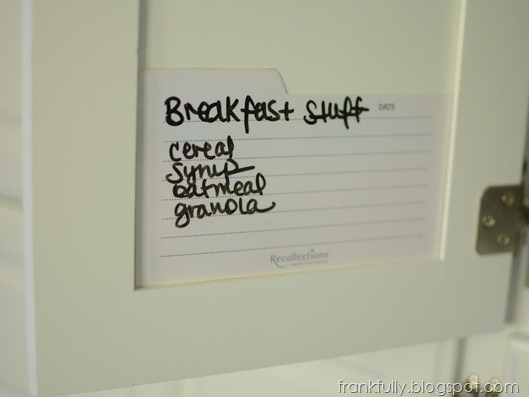 Breakfast stuff DATE
cereal
syrup
oatmeal
granola
Recollections
frankfully.blogspot.com